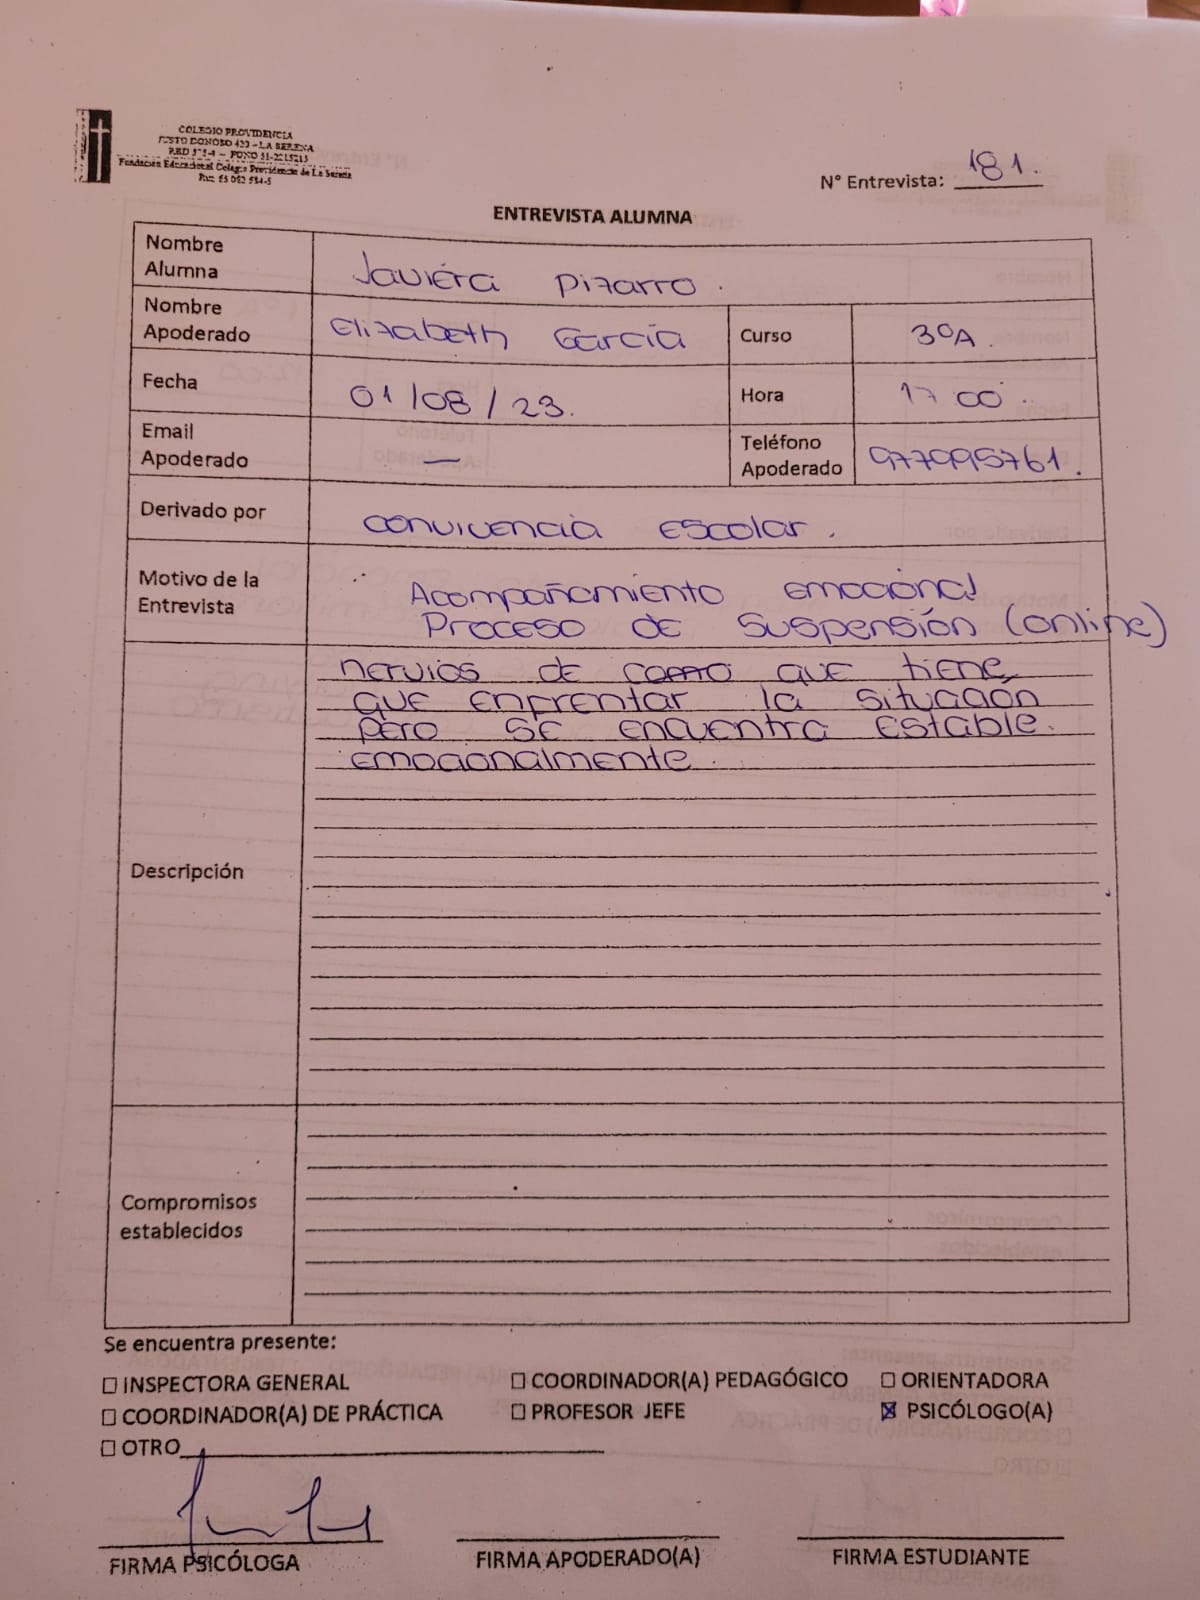 COLEGIO PROVIDENCIA
JUSTO DONOSO 420 - LA SERENA
RBD - FONO 51-2215213
Fundación Educacional Colegio Providencia de La Serena
N° Entrevista: 181.
ENTREVISTA ALUMNA
Nombre Alumna
Javiera Pizarro.
Nombre Apoderado
Elizabeth García
Curso
3°A.
Fecha
01/08/23.
Hora
17 00.
Email Apoderado
—
Teléfono Apoderado
977995761.
Derivado por
convivencia escolar.
Motivo de la Entrevista
Acompañamiento emocional
Proceso de suspensión (online)
Descripción
nervios de como que tiene
que enfrentar la situación
pero se encuentra estable.
emocionalmente.
Compromisos establecidos
Se encuentra presente:
☐ INSPECTORA GENERAL ☐ COORDINADOR(A) PEDAGÓGICO ☐ ORIENTADORA
☐ COORDINADOR(A) DE PRÁCTICA ☐ PROFESOR JEFE ☒ PSICÓLOGO(A)
☐ OTRO
FIRMA PSICÓLOGA FIRMA APODERADO(A) FIRMA ESTUDIANTE